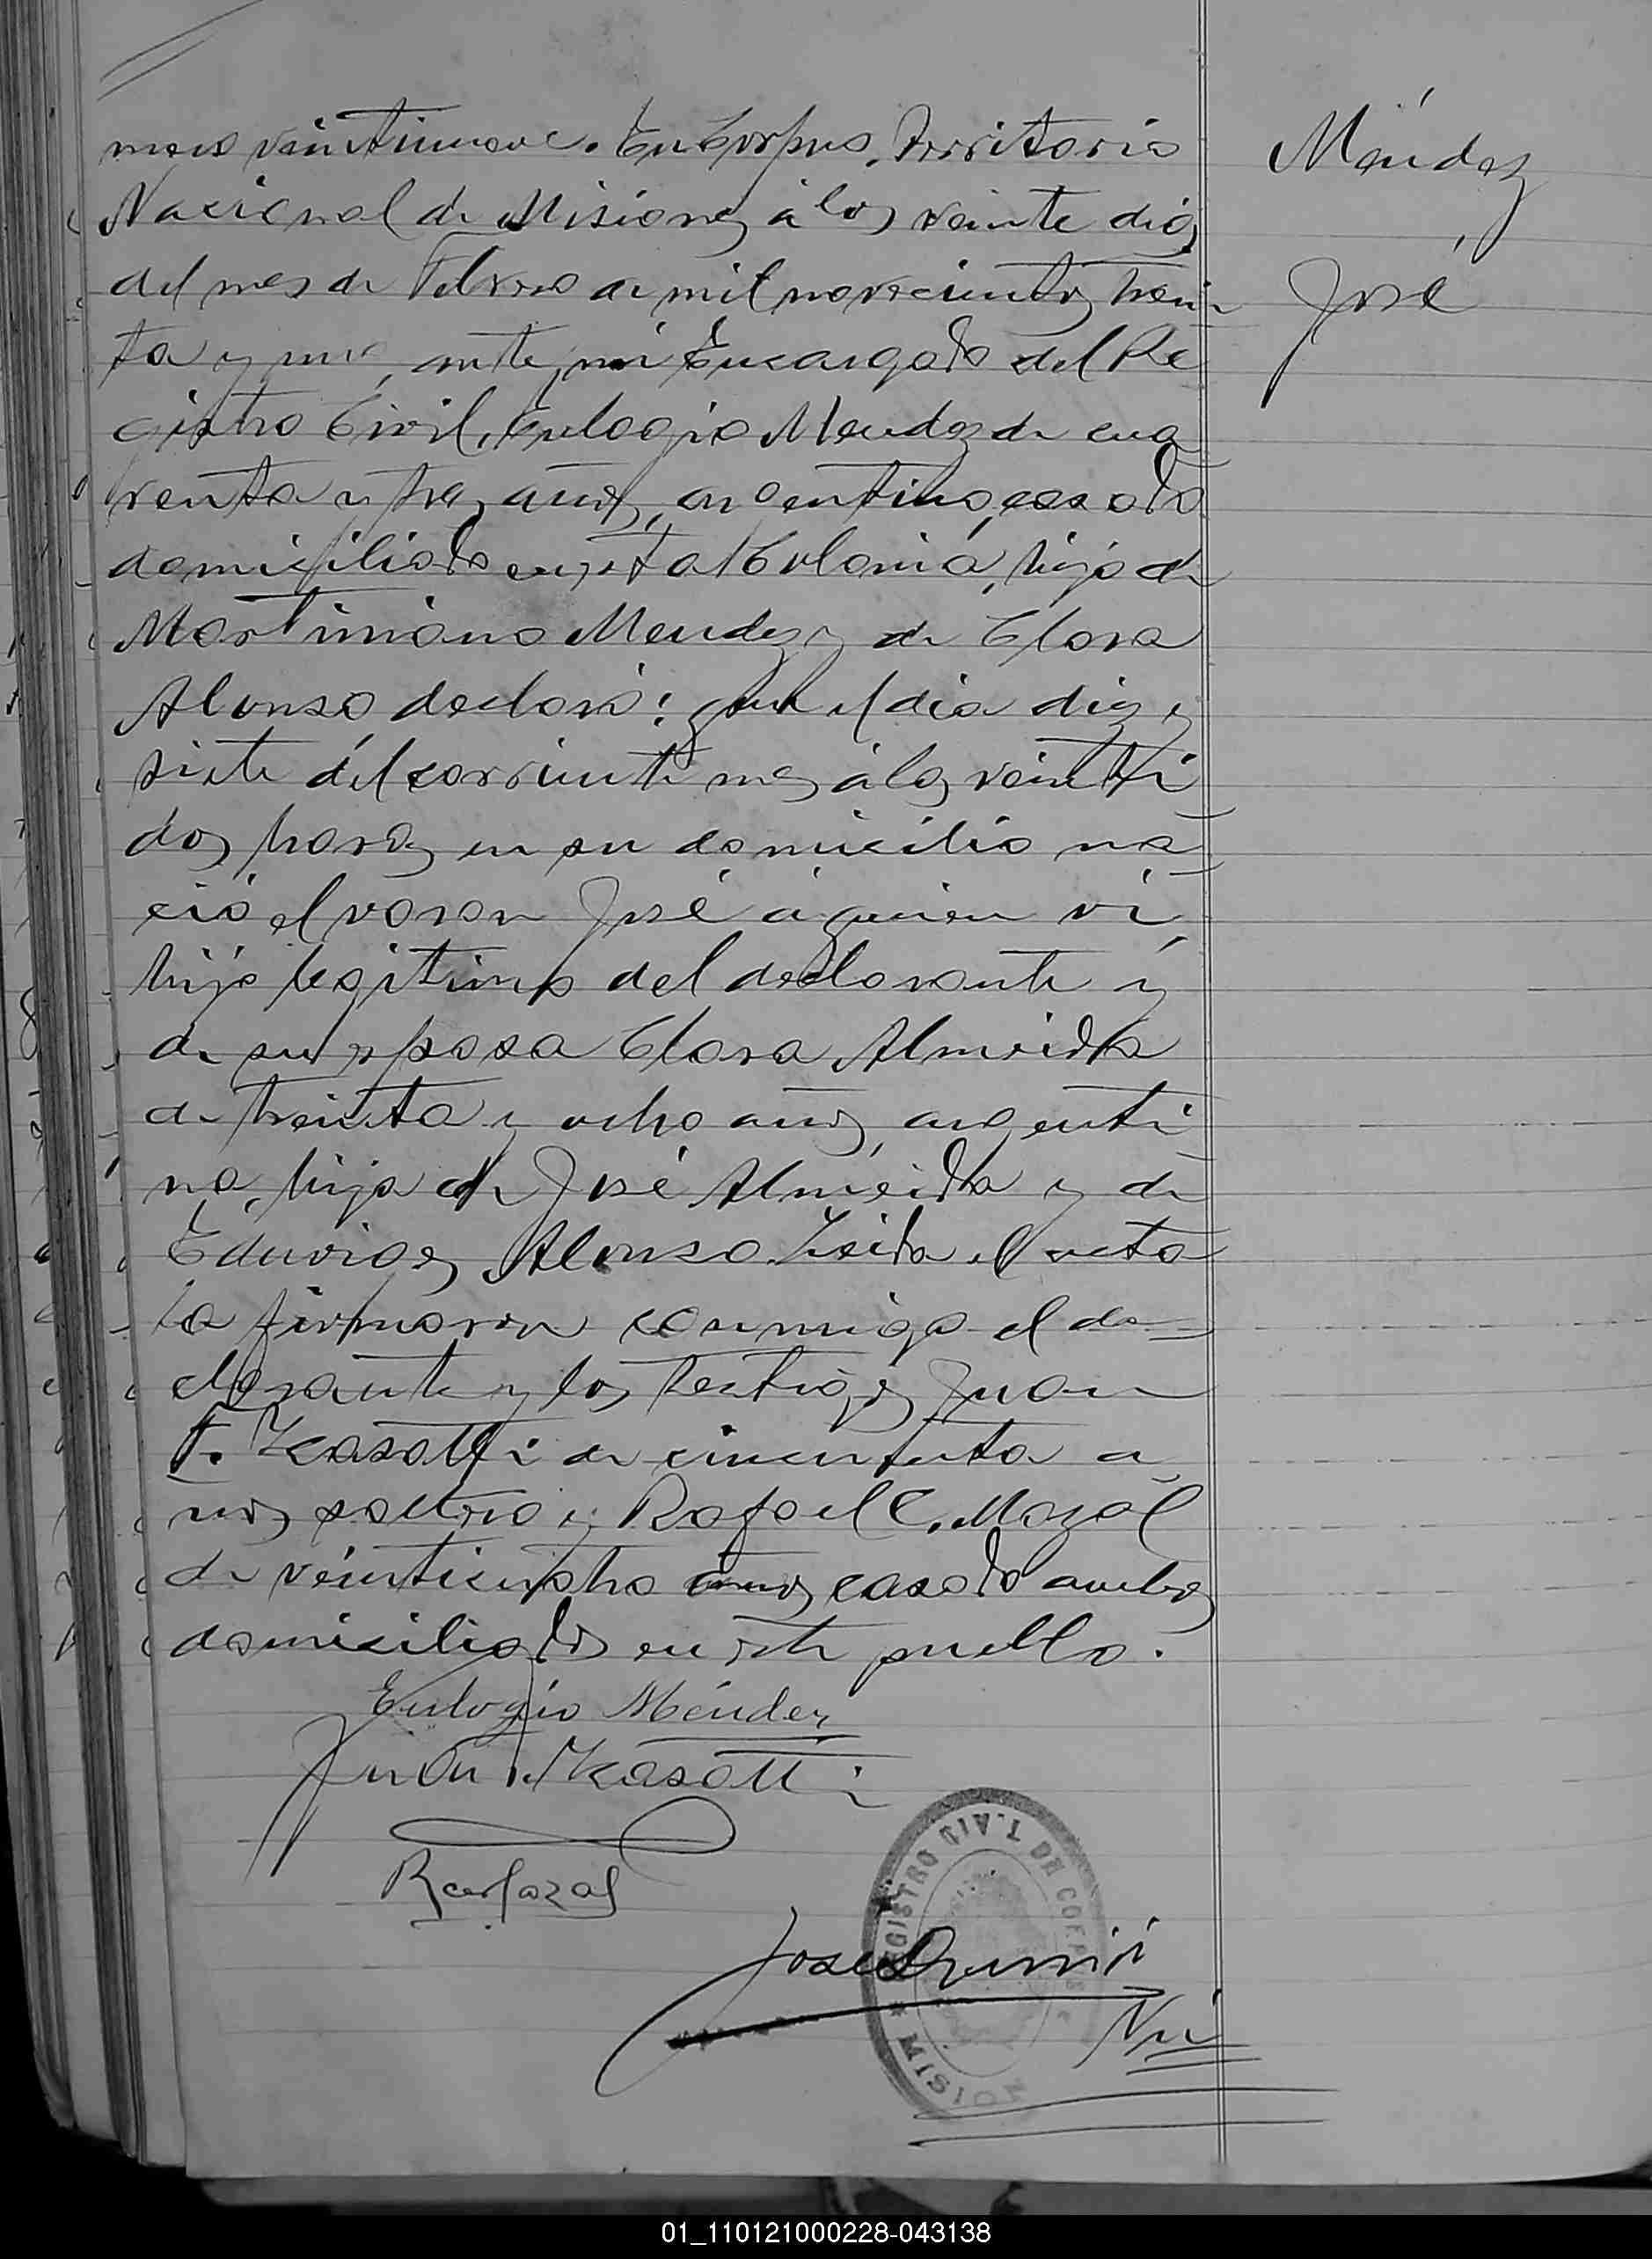 mero veintinueve. En Corpus, Territorio
Nacional de Misiones á los veinte dias
del mes de Febrero de mil novecientos trein
ta y uno, ante mi Encargado del Re
gistro Civil, Eulogio Mendez de cua
renta y tres años, argentino, casado
domiciliado en esta Colonia, hijo de
Martiniano Mendez y de Clara
Alonso, declaró: que el dia diez y
siete del corriente mes á las veinti
dos horas en su domicilio na
ció el varon José á quien vi,
hijo legitimo del declarante y
de su esposa Clara Almeida
de treinta y ocho años, argenti
na, hija de José Almeida y de
Eduvigez Alonso. Leida el acta
la firmaron conmigo el de
clarante y los testigos Juan
F. Kasotti de cincuenta a
ños soltero y Rafael C. Mazal
de veinticuatro años casado ambos
domiciliados en este pueblo.
Eulogio Méndez
Juan F. Kasotti
José
Méndez
José
REGISTRO CIVIL DE CORPUS
MISIONES
01_110121000228-043138